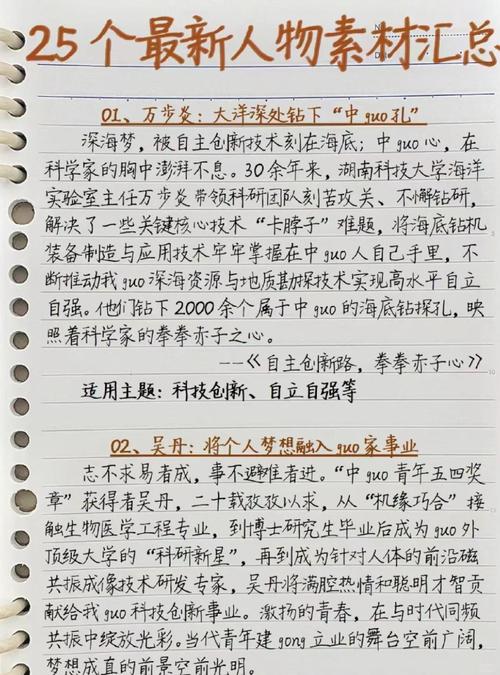 25个最新人物素材汇总
01、万步炎：大洋深处钻下“中guo孔”
深海梦，被自主创新技术刻在海底；中guo心，在
科学家的胸中澎湃不息。30余年来，湖南科技大学海洋
实验室主任万步炎带领科研团队刻苦攻关、不懈钻研，
解决了一些关键核心技术“卡脖子”难题，将海底钻机
装备制造与应用技术牢牢掌握在中guo人自己手里，不
断推动我guo深海资源与地质勘探技术实现高水平自立
自强。他们钻下2000余个属于中guo的海底钻探孔，映
照着科学家的拳拳赤子之心。
--《自主创新路，拳拳赤子心》
适用主题：科技创新、自立自强等
02、吴丹：将个人梦想融入guo家事业
志不求易者成，事不避难者进。“中guo青年五四奖
章”获得者吴丹，二十载孜孜以求，从“机缘巧合”接
触生物医学工程专业，到博士研究生毕业后成为guo外
顶级大学的“科研新星”，再到成为针对人体的前沿磁
共振成像技术研发专家，吴丹将满腔热情和聪明才智贡
献给我guo科技创新事业。激扬的青春，在与时代同频
共振中绽放光彩。当代青年建gong立业的舞台空前广阔，
梦想成真的前景空前光明。